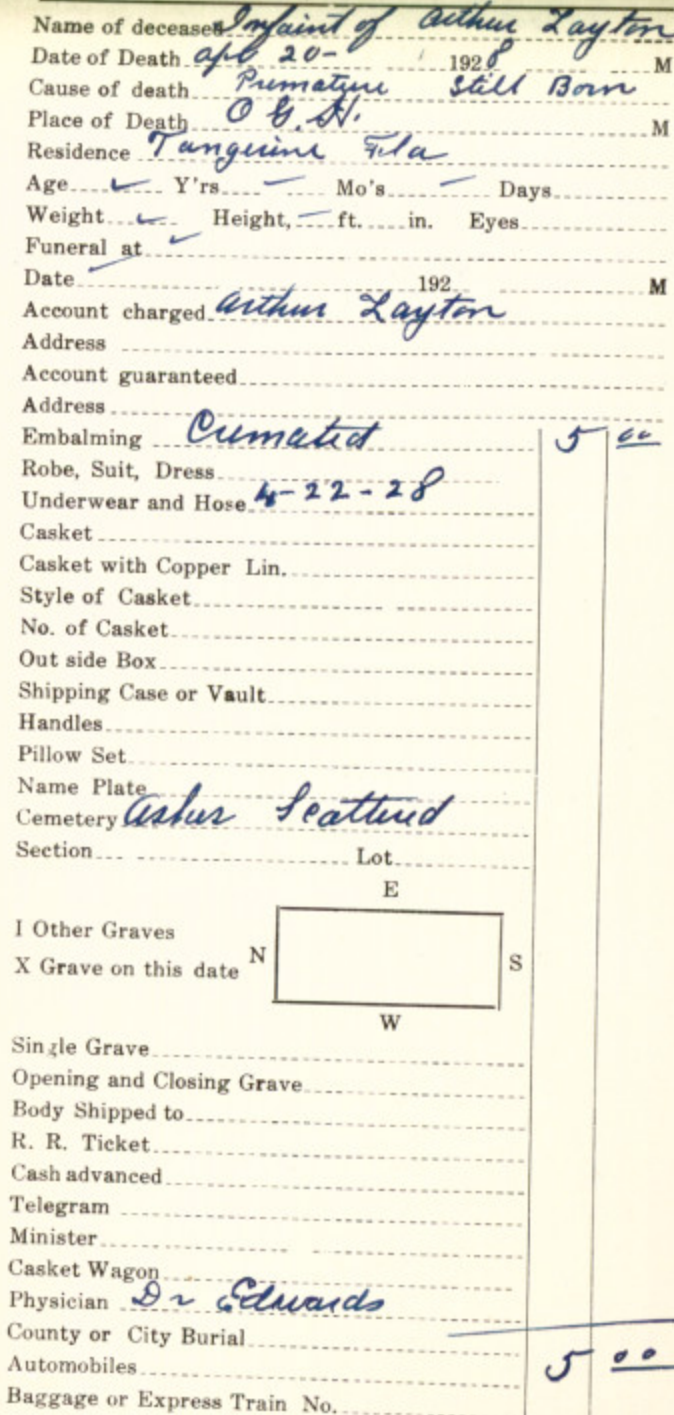 Name of deceased Infaint of Arthur Layton
Date of Death Apl 20- 1928 M
Cause of death Premature Still Born
Place of Death O G. H. M
Residence Tangerine Fla
Age ✓ Y'rs — Mo's — Days
Weight ✓ Height, — ft. in. Eyes
Funeral at ✓
Date 192 M
Account charged Arthur Layton
Address
Account guaranteed
Address
Embalming Cremated 5 00
Robe, Suit, Dress
Underwear and Hose 4-22-28
Casket
Casket with Copper Lin.
Style of Casket
No. of Casket
Out side Box
Shipping Case or Vault
Handles
Pillow Set
Name Plate
Cemetery Ashes Scattered
Section Lot
E
I Other Graves
X Grave on this date N S
W
Single Grave
Opening and Closing Grave
Body Shipped to
R. R. Ticket
Cash advanced
Telegram
Minister
Casket Wagon
Physician Dr Edwards
County or City Burial
Automobiles 5 00
Baggage or Express Train No.